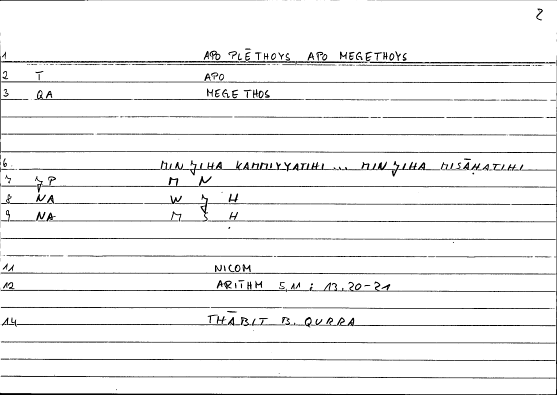 2
1 APO PLĒTHOYS APO MEGETHOYS
2 T APO
3 QA MEGETHOS
6 MIN ǦIHA KAMMIYYATIHI ... MIN ǦIHA MISĀḤATIHI
7 ǦP M N
8 NA W Ǧ H
9 NA M S Ḥ
11 NICOM
12 ARITHM 5,11 : 13,20-21
14 THĀBIT B. QURRA